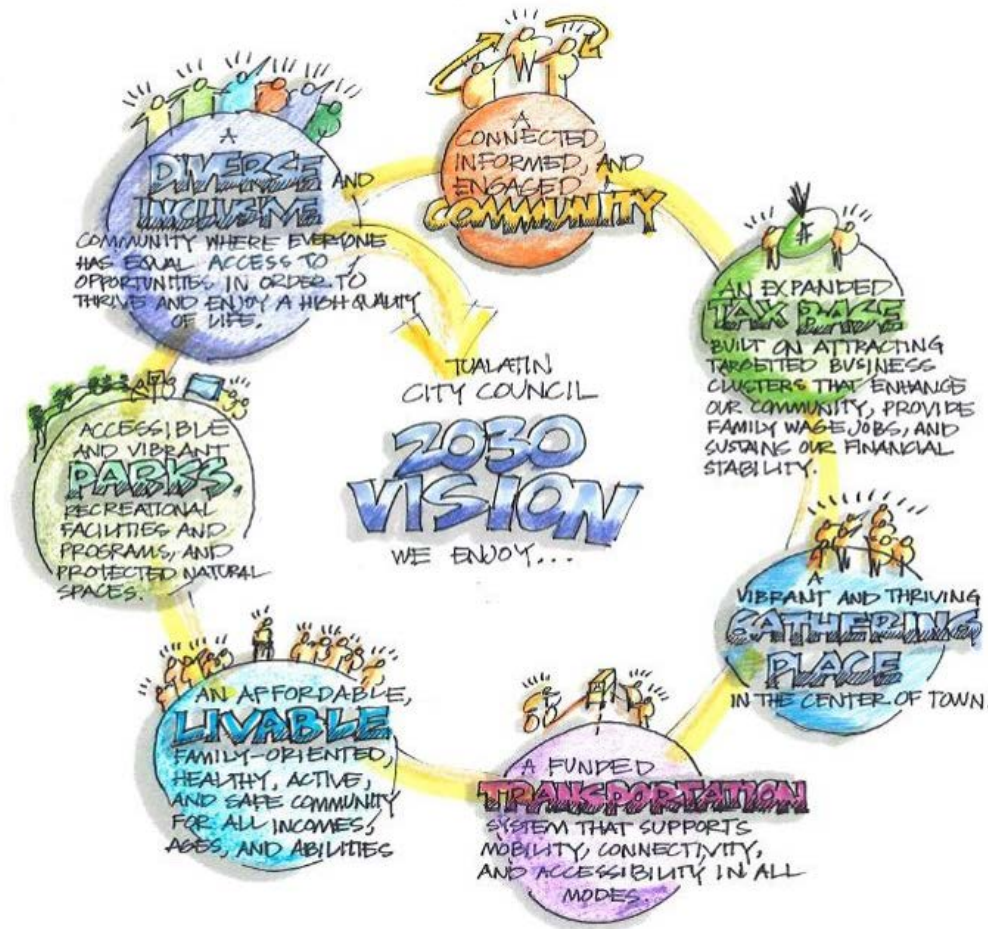 TUALATIN
CITY COUNCIL
2030
VISION
WE ENJOY...
A
CONNECTED,
INFORMED, AND
ENGAGED
COMMUNITY
AN EXPANDED
TAX BASE
BUILT ON ATTRACTING
TARGETTED BUSINESS
CLUSTERS THAT ENHANCE
OUR COMMUNITY, PROVIDE
FAMILY WAGE JOBS, AND
SUSTAINS OUR FINANCIAL
STABILITY.
A
VIBRANT AND THRIVING
GATHERING
PLACE
IN THE CENTER OF TOWN.
A FUNDED
TRANSPORTATION
SYSTEM THAT SUPPORTS
MOBILITY, CONNECTIVITY,
AND ACCESSIBILITY IN ALL
MODES.
AN AFFORDABLE,
LIVABLE
FAMILY-ORIENTED,
HEALTHY, ACTIVE,
AND SAFE COMMUNITY
FOR ALL INCOMES,
AGES, AND ABILITIES
ACCESSIBLE
AND VIBRANT
PARKS,
RECREATIONAL
FACILITIES AND
PROGRAMS, AND
PROTECTED NATURAL
SPACES.
A
DIVERSE AND
INCLUSIVE
COMMUNITY WHERE EVERYONE
HAS EQUAL ACCESS TO
OPPORTUNITIES IN ORDER TO
THRIVE AND ENJOY A HIGH QUALITY
OF LIFE.